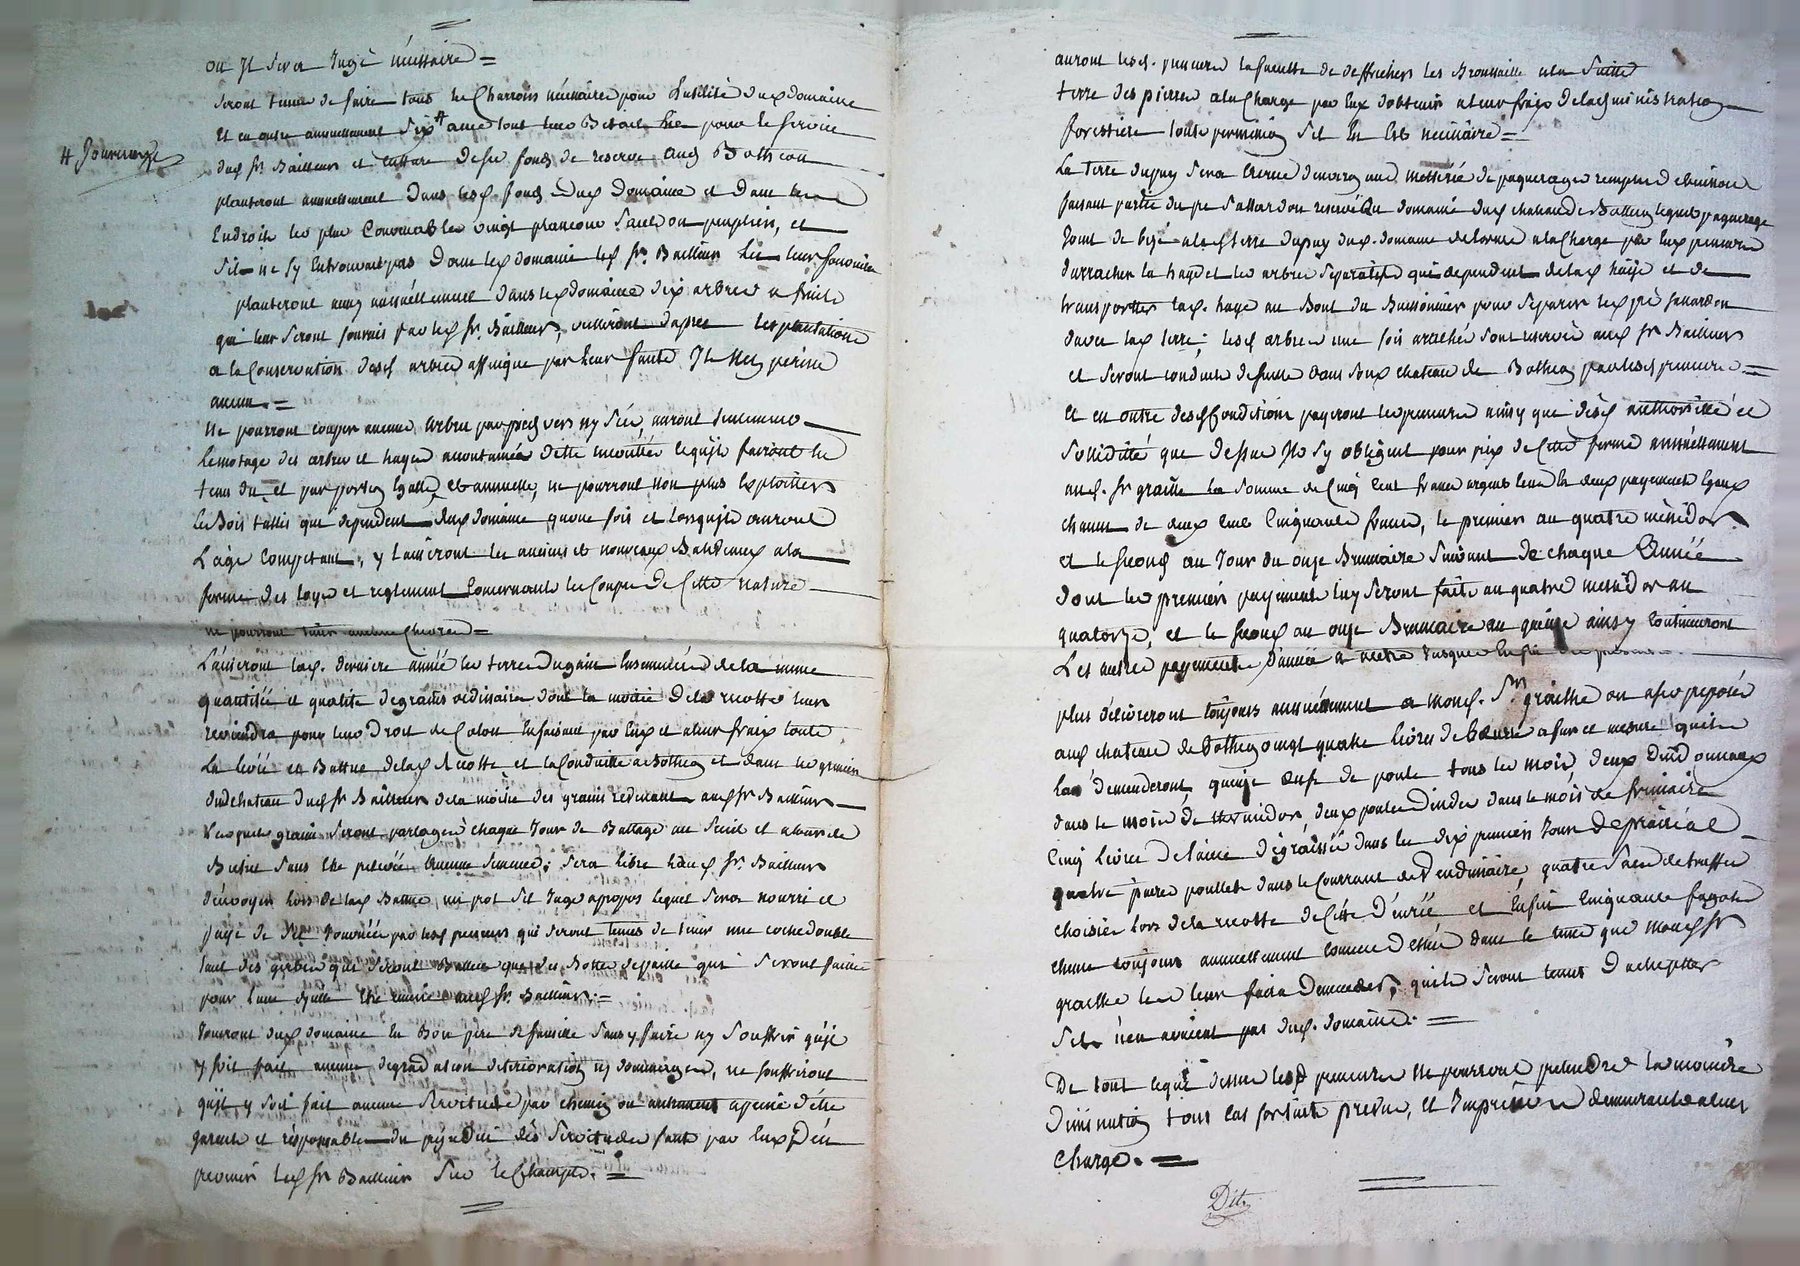 ou Jl sera Jugé nécéssaire =
seront tenus de faire tous les Charrois nécéssaire pour Lutilité dud domaine
et en outre annuellement Six # avec tout leur Betail pour le service
# Journeaux
dud Sr. Bailleur et Culture de fonds de reserve aud Botheon
planteront annuellement dans lesd fonds dud domaine et dans les
Endroits les plus Convenables vingt plancons Saule ou peuplier, et
S'il ne sy entrouvait pas dans led domaine led Sr. Bailleur les leur fournira
planteront aussy annuéllement dans led domaine dix arbres a fruits
qui leur seront fournis par led Sr. Bailleur, veilleront dapres les plantations
a la Conservation desd arbres affinque par leur faute Jl N'en perisse
aucun. =
Ne pourront couper aucuns arbres par pied vers ny Séc, auront seulement
lemotage des arbres et hayes accoutumés dettre ququ'ils fairont le
tems du et par portion Egalle et annuelle, ne pourront Non plus Exploitter
les Bois taillis qui dependent dud domaine qu'une fois et lorsquils auront
L'age Competant, y laisseront les anciens et nouveaux Balliveaux a la
forme des loyx et reglement Concernant les Coupes de Cette nature
ne pourront tenir aucune Chevres =
Laisseront lad. derniere année les terres dugain Ensemencées de la même
quantitée et qualité de grains ordinaire dont la moitié de la recotte leur
reviendra pour leur Droit de Colon Enfaisant par Eux et aleur fraix toute
La levée et Battue delad Recotte et la Conduitte a Botheon et dans les greniers
dudchateau dud Sr Bailleur de la moitié des grains revenant aud Sr Bailleur
Lesquels grains seront partagés chaque Jour de Battage au Seuil et
Sans Etre prelevée aucune Semence; sera libre aud Sr. Bailleur
d'envoyer lors de lad Battue, un s'il Juge apropos lequel sera nourri et
payé de Ses Journées par lesd preneurs qui seront tenus de tenir une coche double
tant des gerbes qui seront Battues que des Bottes de paille qui seront faites
pour lune Etre remise aud Sr. Bailleur. =
Jouiront dud domaine En Bon pere de famille sans y faire ny Souffrir quil
y soit fait aucune dégradation déterioration ny dommages, ne souffriront
quil y soit fait aucune servitude par chemin ou autrement apeine dEtre
garants et résponsables du préjudice des servitudes faute par Eux D'en
prevenir led Sr Bailleur Sur le Champ. =
auront lesd. preneurs la faculté de deffricher les Broussailles a la Suitte
terre des pierres a la Charge par Eux d'obtenir aleur fraix de lad ministration
forestiere toute permission Sil En Est necéssaire =
La terre dupuy sera
faisant partie du pré Sallardon reservé du domaine dud chateau de Bothéon lequel paquerage
Joint de bize a lad terre dupuy dud. domaine a la Charge par Eux preneurs
darracher la haye et les arbres séparatifs qui dependent delad haye et de
transportter lad. haye au Bout du Buissonnier pour séparer led pré Sallardon
davec lad terre; lesd arbres une fois arrachés sont reservés aud Sr Bailleur
et seront conduits desuitte dans dud chateau de Botheon par lesd preneurs =
Et en outre desd Conditions payeront les preneurs ainsy que
Sollidittée que dessus Jls sy obligent pour prix de Cette ferme annuéllement
aud. Sr graille la somme de Cinq Cent francs argent En deux payements Egaux
chacun de deux Cent Cinquante francs, le premier au quatre méssidor
et le second au Jour du onze Brumaire suivant de chaque Année
dont les premiers payements luy seront faits au quatre messidor an
quatorze, et le second au onze Brumaire an quinze ainsy Continueront
Les autres payements d'année a autre Jusques
plus délivreront toujours annuéllement a mond. Sr graille ou asces preposés
aud chateau de Bothéon vingt quatre livres de beurre a fur et mesure quils
La demanderont, quinze oeufs de poule tous les mois, deux dindonneaux
dans le mois de thermidor, deux poules dindes dans le mois de frimaire
Cinq livres de laine dégraissée dans les dix premiers Jours de prairial
quatre paires poullets dans le Courrant de Vendimiaire, quatre Sacs de truffes
choisies lors de la recotte de Cette denrée et Enfin Cinquante fagots
chene toujours annuellement Comme dessus dans le tems que mond Sr
graille les leur faira Demander, quils seront tenus D'achepter
Sils n'en avaient pas dud. domaine. =
De tout cequi dessus lesd preneurs Ne pourront pretendre la moindre
Diminution tous cas fortuits prevus, et Jmprévus demeurants a leur
Charge. =
Dit